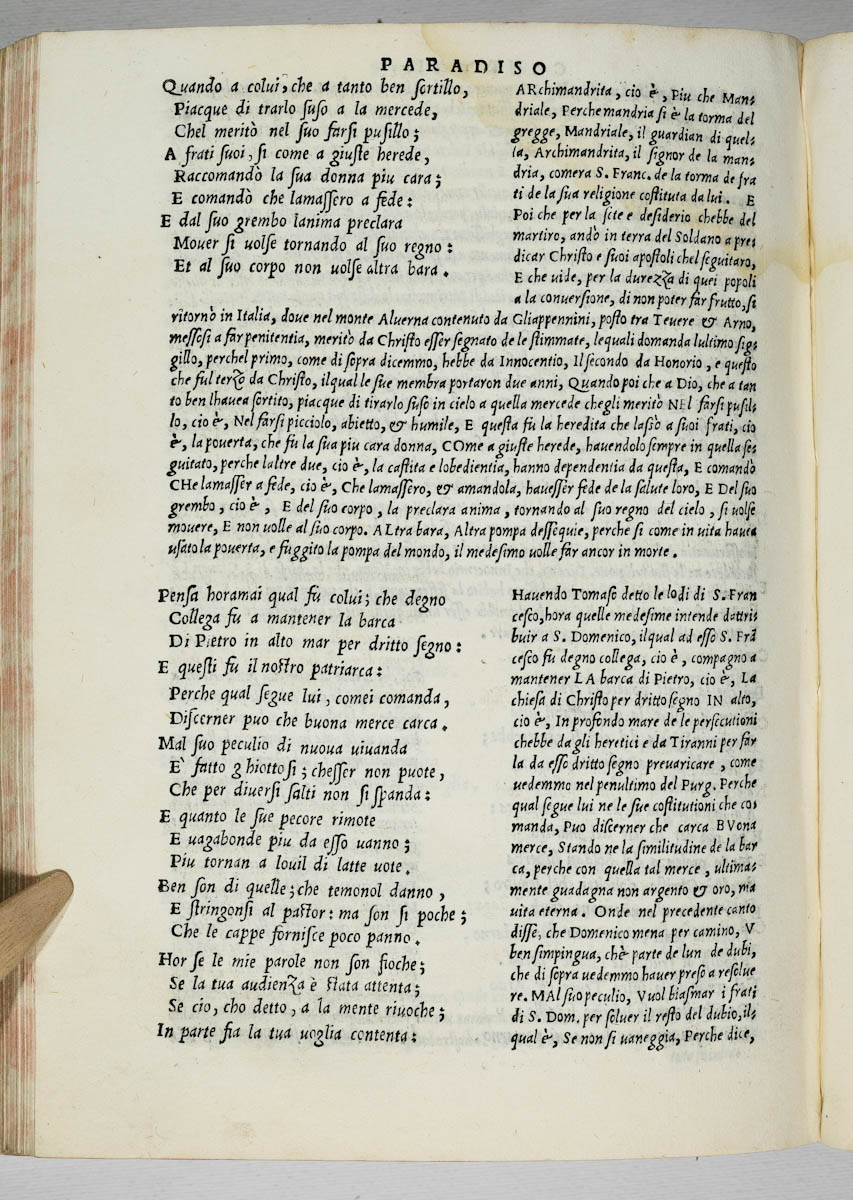 PARADISO
Quando a colui, che a tanto ben sortillo,
Piacque di trarlo suso a la mercede,
Chel meritò nel suo farsi pusillo;
A frati suoi, si come a giuste herede,
Raccomandò la sua donna piu cara;
E comandò che lamassero a fede:
E dal suo grembo lanima preclara
Mouer si uolse tornando al suo regno:
Et al suo corpo non uolse altra bara.
ARchimandrita, cio è, Piu che Man-
driale, Perche mandria si è la torma del
gregge, Mandriale, il guardian di quel-
la, Archimandrita, il signor de la man-
dria, comera S. Franc. de la torma de fra
ti de la sua religione costituta da lui. E
Poi che per la sete e desiderio chebbe del
martiro, andò in terra del Soldano a pre-
dicar Christo e suoi apostoli chel seguitaro,
E che uide, per la durezza di quei popoli
a la conuersione, di non poter far frutto, si
ritornò in Italia, doue nel monte Aluerna contenuto da Gliappennini, posto tra Teuere & Arno,
messosi a far penitentia, meritò da Christo esser segnato de le stimmate, lequali domanda lultimo sig-
gillo, perchel primo, come di sopra dicemmo, hebbe da Innocentio, Il secondo da Honorio, e questo
che ful terzo da Christo, ilqual le sue membra portaron due anni, Quando poi che a Dio, che a tan
to ben lhauea sortito, piacque di tirarlo suso in cielo a quella mercede chegli meritò NEl farsi pusil-
lo, cio è, Nel farsi picciolo, abietto, & humile, E questa fù la heredita che lasciò a suoi frati, cio
è, la pouerta, che fù la sua piu cara donna, COme a giuste herede, hauendolo sempre in quella se-
guitato, perche laltre due, cio è, la castita e lobedientia, hanno dependentia da questa, E comandò
CHe lamasser a fede, cio è, Che lamassero, & amandola, hauesser fede de la salute loro, E Del suo
grembo, cio è, E del suo corpo, la preclara anima, tornando al suo regno del cielo, si uolse
mouere, E non uolle al suo corpo. ALtra bara, Altra pompa dessequie, perche si come in uita hauea
usato la pouerta, e fuggito la pompa del mondo, il medesimo uolle far ancor in morte.
Pensa horamai qual fù colui; che degno
Collega fù a mantener la barca
Di Pietro in alto mar per dritto segno:
E questi fu il nostro patriarca:
Perche qual segue lui, comei comanda,
Discerner puo che buona merce carca.
Mal suo peculio di nuoua uiuanda
E' fatto ghiottosi; chesser non puote,
Che per diuersi salti non si spanda:
E quanto le sue pecore rimote
E uagabonde piu da esso uanno;
Piu tornan a louil di latte uote.
Ben son di quelle; che temonol danno,
E stringonsi al pastor: ma son si poche;
Che le cappe fornisce poco panno.
Hor se le mie parole non son fioche;
Se la tua audienza è stata attenta;
Se cio, cho detto, a la mente riuoche;
In parte fia la tua uoglia contenta:
Hauendo Tomaso detto le lodi di S. Fran
cesco, hora quelle medesime intende dattri-
buir a S. Domenico, ilqual ad esso S. Frã
cesco fù degno collega, cio è, compagno a
mantener LA barca di Pietro, cio è, La
chiesa di Christo per dritto segno IN alto,
cio è, In profondo mare de le persecutioni
chebbe da gli heretici e da Tiranni per far
la da esso dritto segno preuaricare, come
uedemmo nel penultimo del Purg. Perche
qual segue lui ne le sue costitutioni che co-
manda, Puo discerner che carca BVona
merce, Stando ne la similitudine de la bar
ca, perche con quella tal merce, ultima-
mente guadagna non argento & oro, ma
uita eterna. Onde nel precedente canto
disse, che Domenico mena per camino, V
ben simpingua, chè parte de lun de dubi,
che di sopra uedemmo hauer preso a resolue
re. MAl suo peculio, Vuol biasmar i frati
di S. Dom. per soluer il resto del dubio, il-
qual è, Se non si uaneggia, Perche dice,